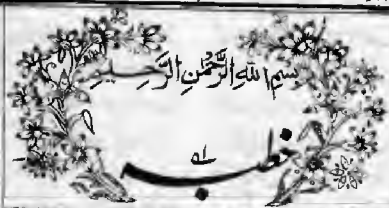 بِسْمِ اللّٰهِ الرَّحْمٰنِ الرَّحِیْمِ
خطبہ